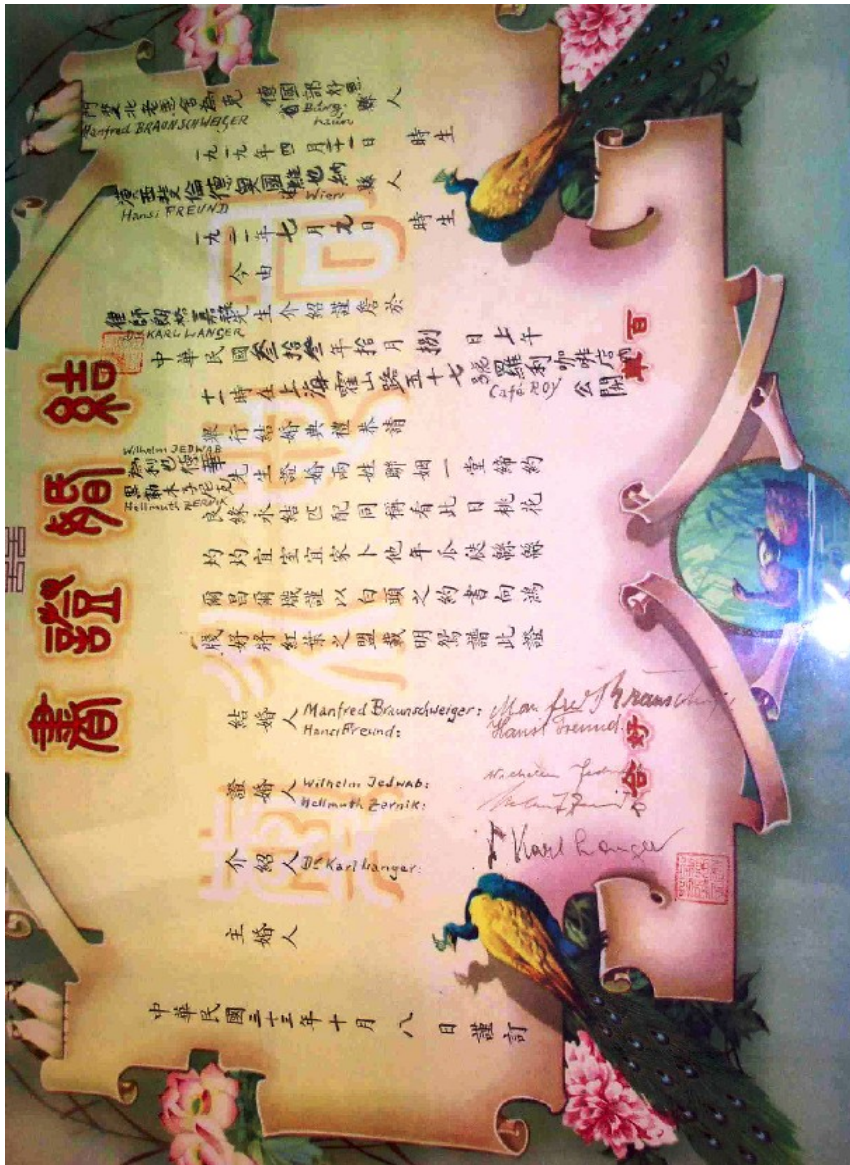 結婚證書
德國
縣人
Manfred BRAUNSCHWEIGER
一九一九年四月 日 時生
倫德奧國維也納 縣人
Hansi FREUND Wien
一九二一年七月九日 時生
今由
律師郎格嘉祿先生介紹謹詹於
Dr KARL LANGER
中華民國叁拾叁年拾月捌日上午
十一時在上海霍山路五十七號羅利咖啡店內公開
Café ROY
舉行結婚典禮恭請
Wilhelm JEDWAB
先生證婚兩姓聯姻一堂締約
Hellmuth ZERNIK
良緣永結匹配同稱看此日桃花
灼灼宜室宜家卜他年瓜瓞緜緜
爾昌爾熾謹以白頭之約書向鴻
牋好將紅葉之盟載明鴛譜此證
結婚人 Manfred Braunschweiger: Manfred Braunschweiger
Hansi Freund: Hansi Freund.
證婚人 Wilhelm Jedwab: Wilhelm Jedwab
Hellmuth Zernik:
介紹人 Dr Karl Langer: Karl Langer
主婚人
中華民國三十三年十月八日謹訂
百年
好合